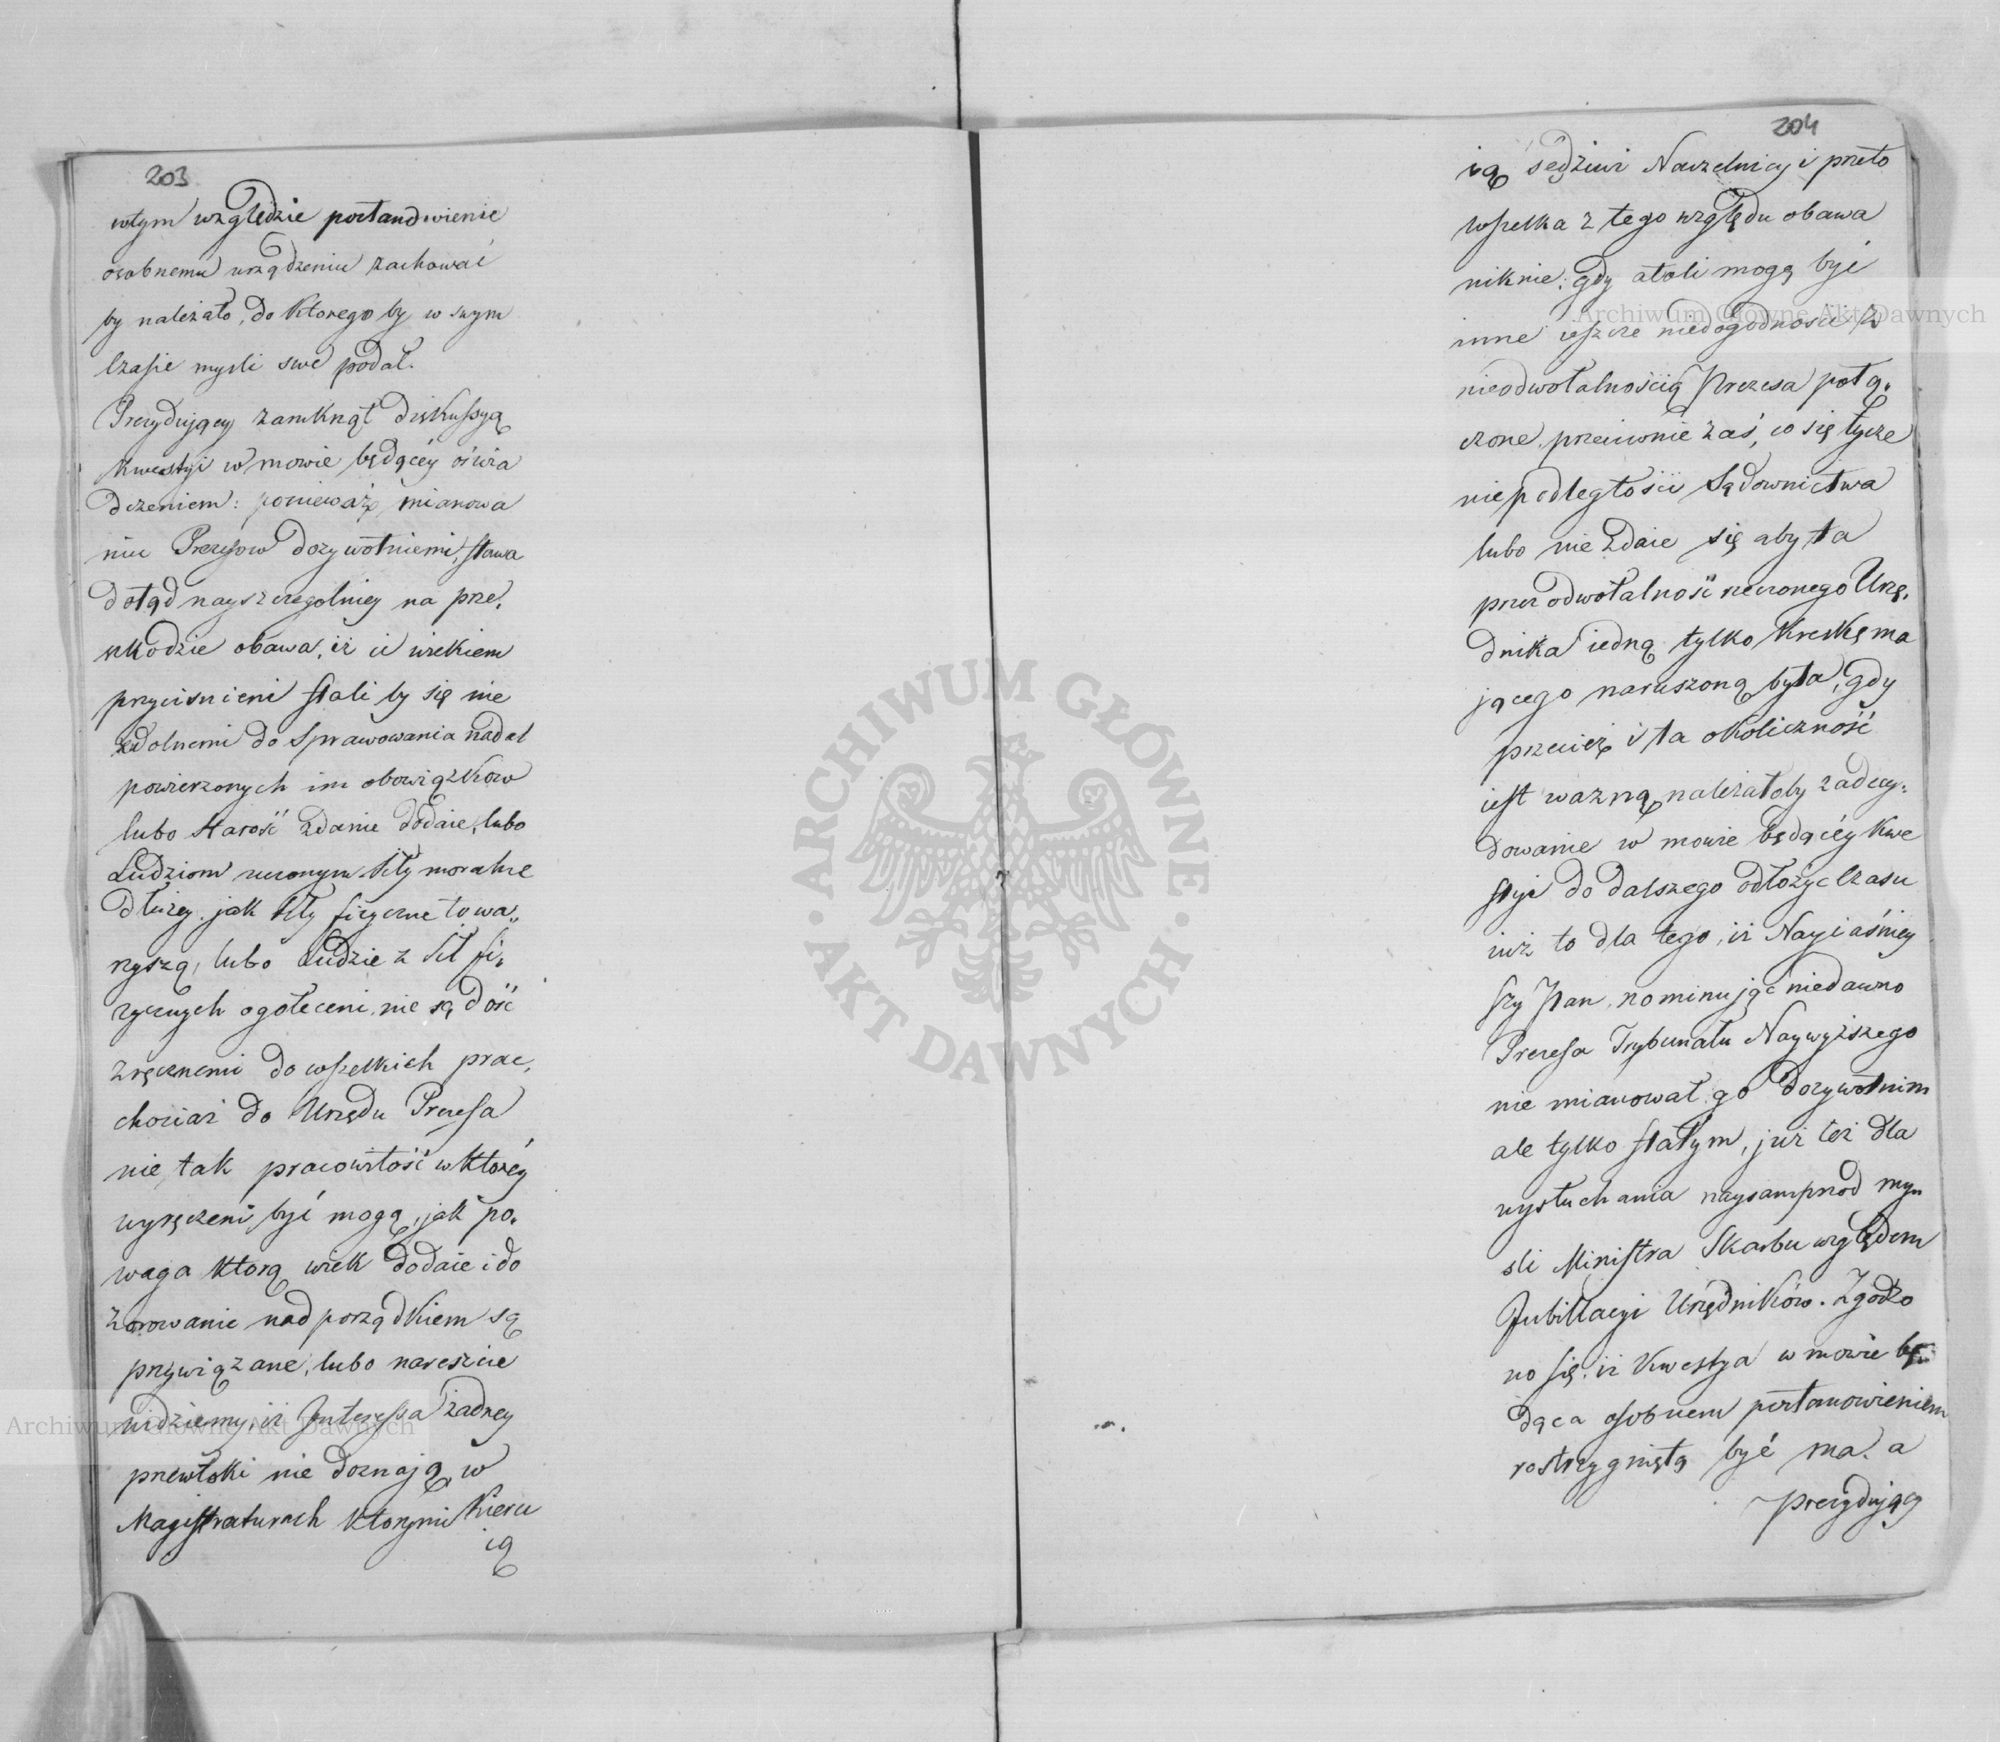 203
wtym względzie postanowienie
osobnemu urządzeniu zachować
by należało, do którego by w swym
czasie mysli swe podał.
Prezydujący zamknął diskussyą
kwestyi w mowie będącéy oświa
dczeniem: ponieważ mianowa
niu Prezesow dozywotniemi, stawa
dotąd nayszczegolniey na prze,
szkodzie obawa, iż ci wiekiem
przyciśnieni stali by się nie
zdolnemi do sprawowania nadal
powierzonych im obowiązkow
lubo starość zdanie dodaie, lubo
Ludziom uczonym siły moralne
dłużey jak siły fizyczne towa„
rzyszą, lubo Ludzie z sił fi„
zycznych ogołoceni, nie są dość
zręcznemi do wszelkich prac,
chociaż do Urzędu Prezesa
nie tak pracowitość w któréy
wyręczeni być mogą, jak po„
waga którą wiek dodaie i do
zorowanie nad porządkiem są
przywiązane, lubo nareszcie
widziemy, iż Interessa żadney
przewłoki nie doznają w
Magistraturach któremi kieru
ią
204
ią sędziwi Naczelnicy i przeto
wszelka z tego względu obawa
niknie: gdy atoli mogą być
inne ieszcze niedogodności z
nieodwołalnością Prezesa połą„
czone, przeciwnie zaś, co się tycze
niepodległości Sądownictwa
lubo nie zdaie się aby ta
przez odwołalność rzeczonego Urzę„
dnika iedną tylko kreskę ma
jącego naruszoną była, gdy
przecież i ta okoliczność
iest ważną, należałoby zadecy„
dowanie w mowie będącéy kwe
styi do dalszego odłożyć czasu
iuż to dla tego, iż Nayiaśniey
szy Pan, nominując niedawno
Prezesa Trybunału Naywyższego
nie mianował go dozywotnim
ale tylko stałym, już też dla
wysłuchania naysamprzod my„
sli Ministra Skarbu względem
Jubillacyi Urzędników. Zgodzo
no się, iż kwestya w mowie bę„
dąca osobnem postanowieniem
rostrzygniętą być ma. a
Prezydujący
Archiwum Główne Akt Dawnych
Archiwum Główne Akt Dawnych
ARCHIWUM GŁÓWNE · AKT DAWNYCH ·